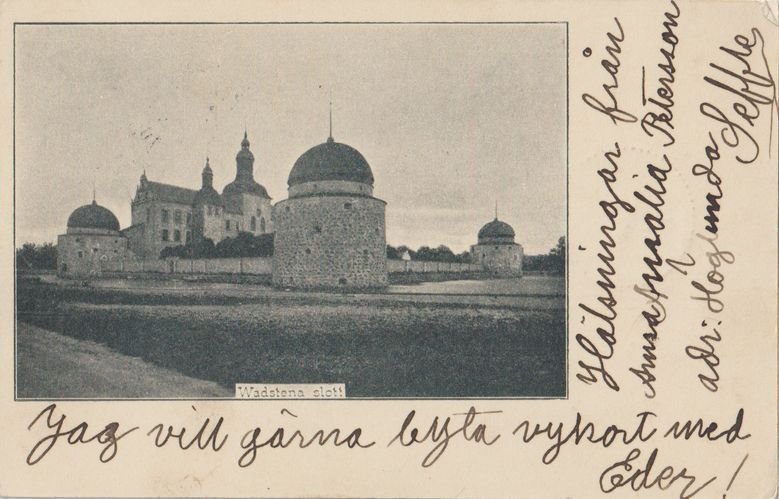 Wadstena slott
Hälsningar från
Anna Amalia Petersson
adr: Höglunda Seffle
Jag vill gärna byta vykort med
Eder!